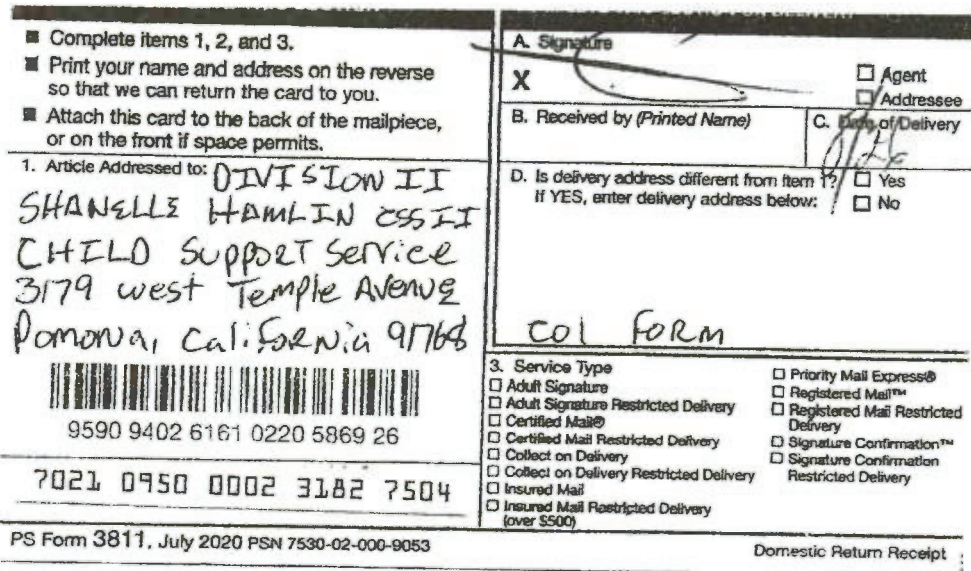 ■ Complete items 1, 2, and 3.
■ Print your name and address on the reverse
so that we can return the card to you.
■ Attach this card to the back of the mailpiece,
or on the front if space permits.
1. Article Addressed to: DIVISION II
SHANELLE HAMLIN CSS II
CHILD SuppoRT Service
3179 west Temple AvenuE
Pomona, CaliforNia 91768
9590 9402 6161 0220 5869 26
7021 0950 0002 3182 7504
A. Signature
X
☐ Agent
☐ Addressee
B. Received by (Printed Name)
C. Date of Delivery
D. Is delivery address different from item 1? ☐ Yes
If YES, enter delivery address below: ☐ No
COL FORM
3. Service Type
☐ Adult Signature
☐ Adult Signature Restricted Delivery
☐ Certified Mail®
☐ Certified Mail Restricted Delivery
☐ Collect on Delivery
☐ Collect on Delivery Restricted Delivery
☐ Insured Mail
☐ Insured Mail Restricted Delivery
(over $500)
☐ Priority Mail Express®
☐ Registered Mail™
☐ Registered Mail Restricted
Delivery
☐ Signature Confirmation™
☐ Signature Confirmation
Restricted Delivery
PS Form 3811, July 2020 PSN 7530-02-000-9053
Domestic Return Receipt